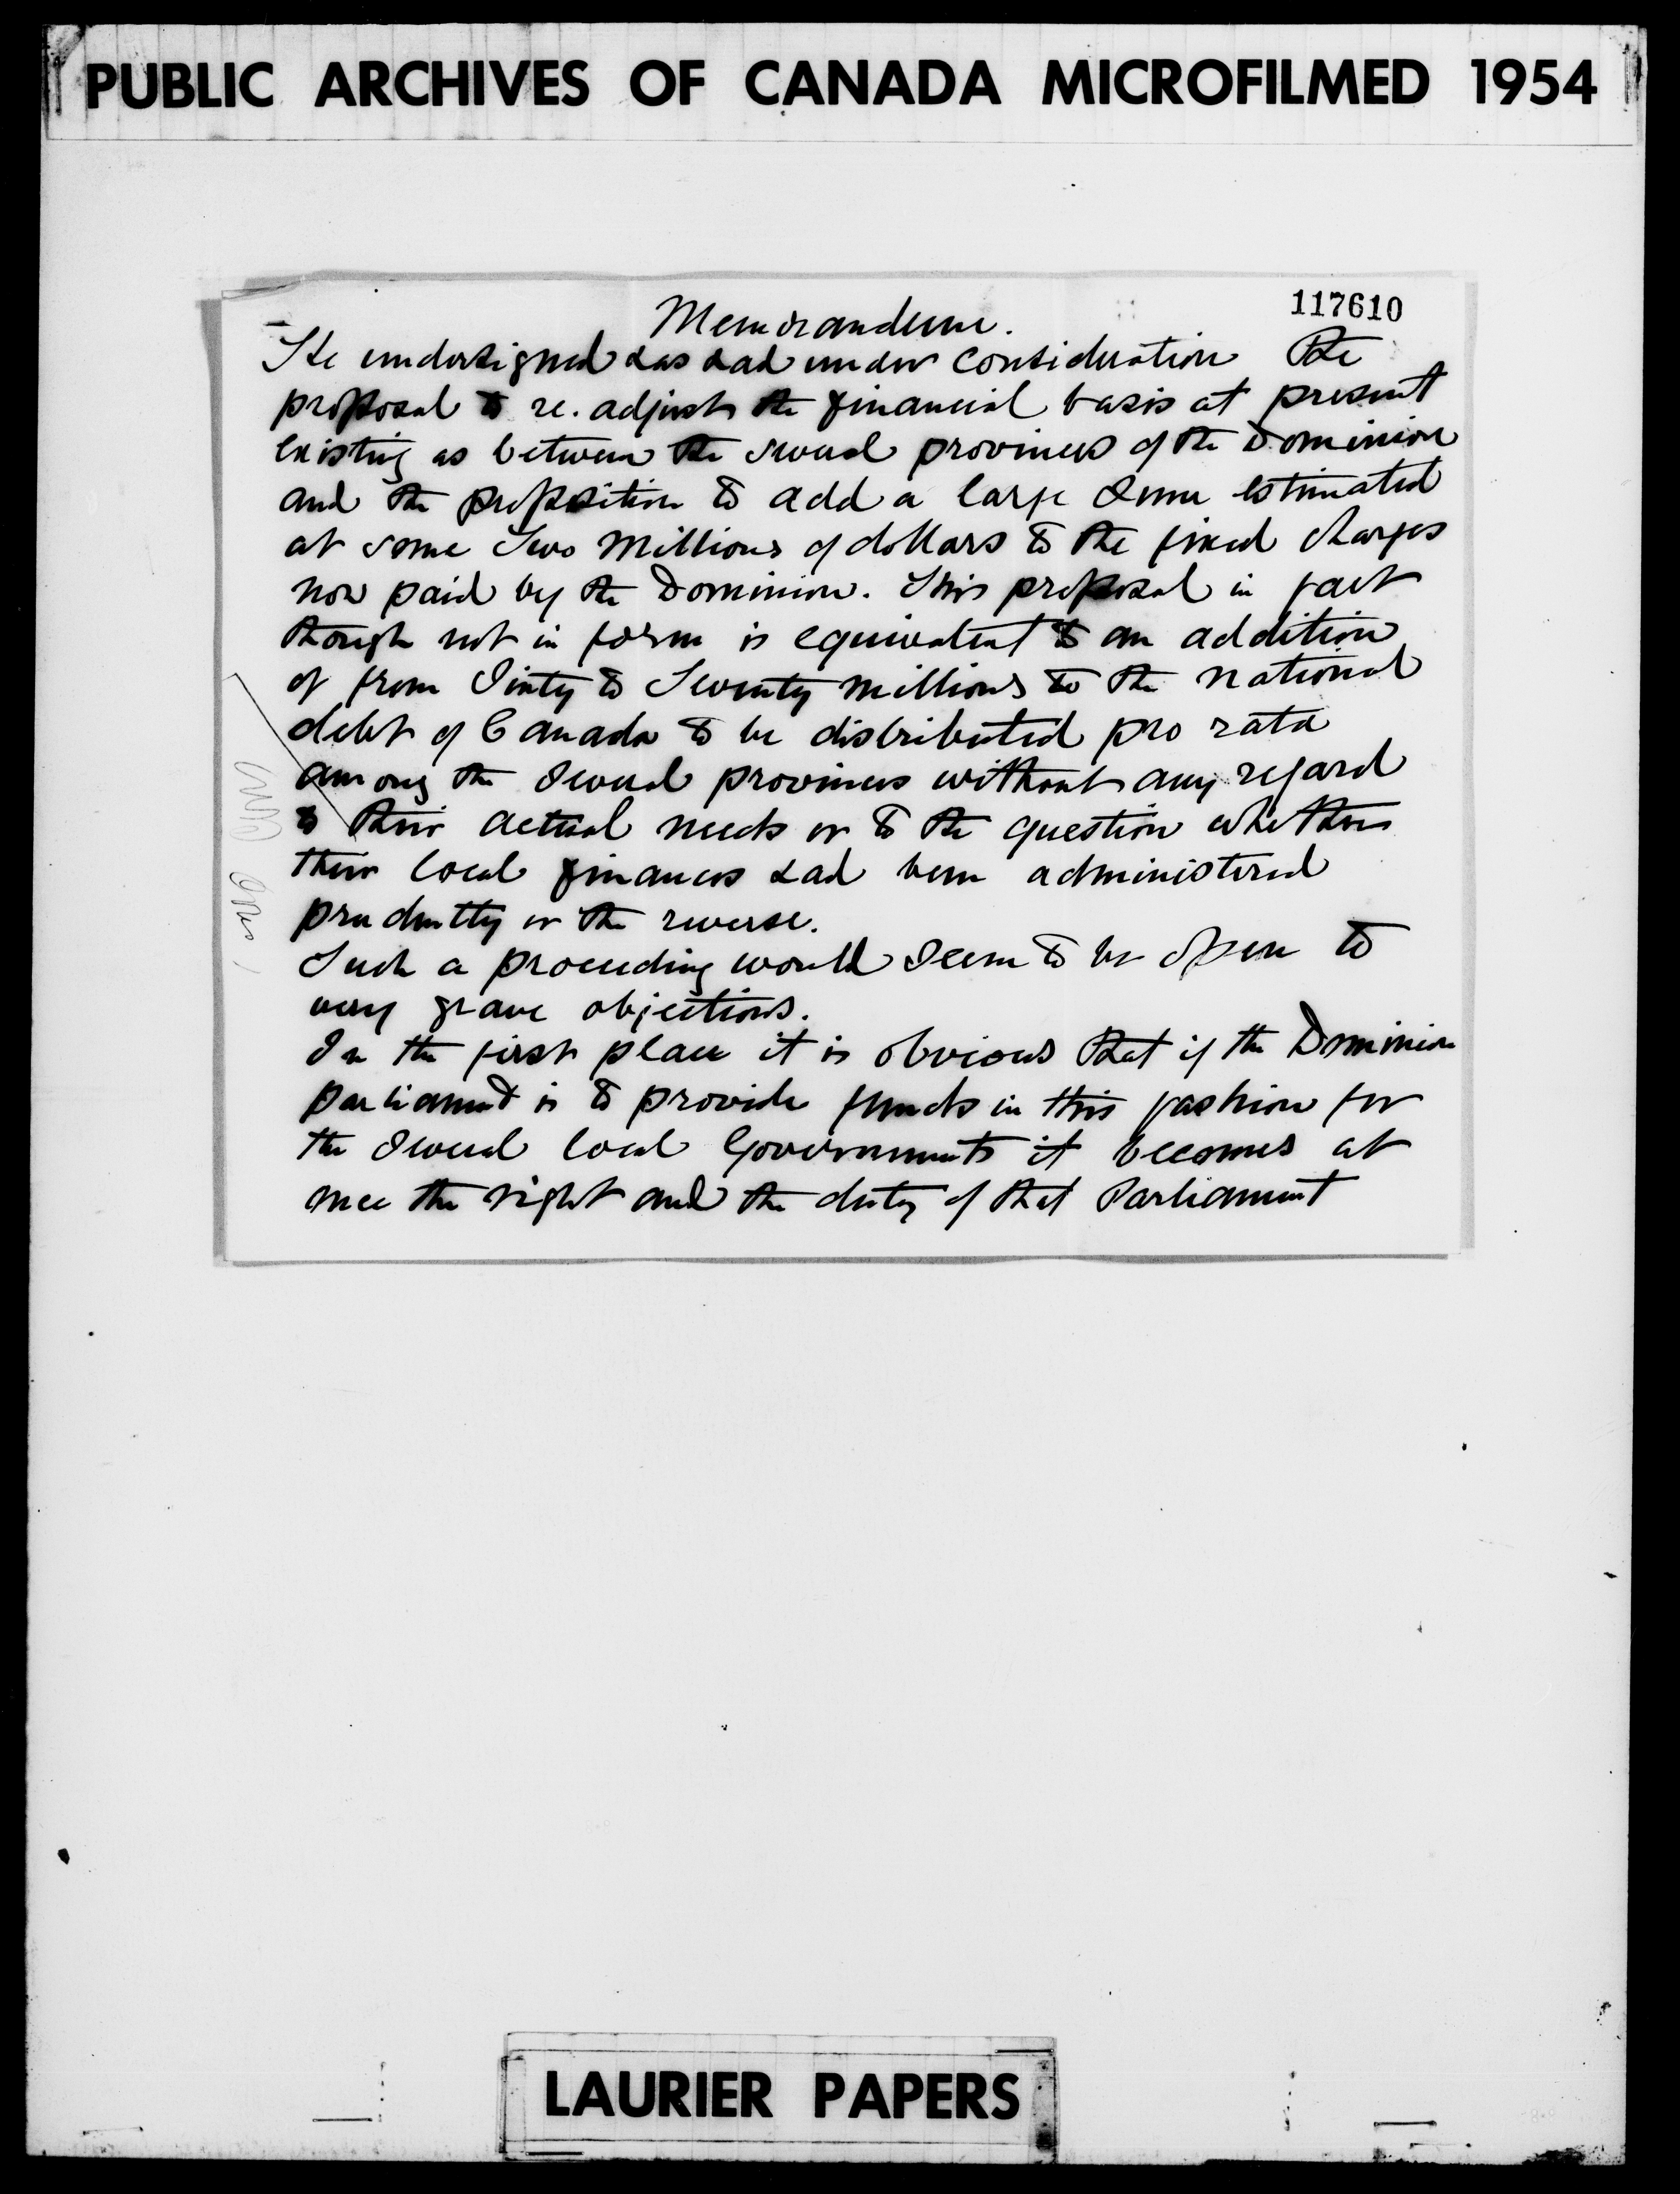 PUBLIC ARCHIVES OF CANADA MICROFILMED 1954
117610
Memorandum.
The undersigned has had under consideration the
proposal to re. adjust the financial basis at present
existing as between the several provinces of the Dominion
and the proposition to add a large sum estimated
at some two millions of dollars to the fixed charges
now paid by the Dominion. This proposal in fact
though not in form is equivalent to an addition
of from Sixty to Seventy millions to the national
debt of Canada to be distributed pro rata
among the several provinces without any regard
to their actual needs or to the question whether
their local finances had been administered
prudently or the reverse.
Such a proceeding would seem to be open to
very grave objections.
In the first place it is obvious that if the Dominion
parliament is to provide funds in this fashion for
the several local Governments it becomes at
once the right and the duty of that Parliament
LAURIER PAPERS